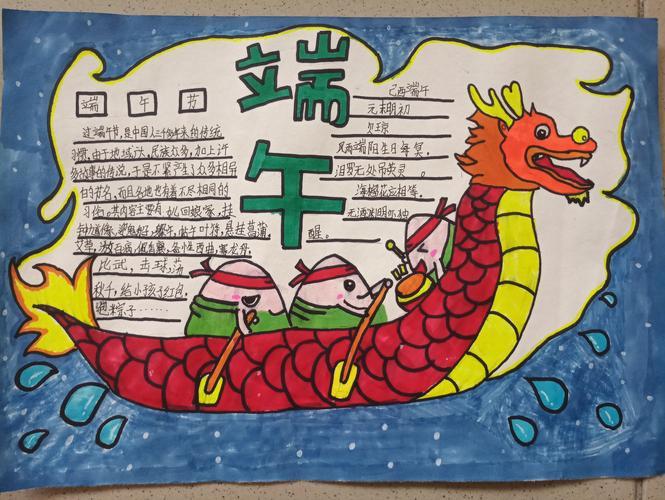 端午
端 午 节
过端午节,是中国人二千多年来的传统
习惯,由于地域广大,民族众多,加上许
多故事的传说,于是不紧产生了众多相异
的节名,而且各地也有着不尽相同的
习俗。其内容主要有:女儿回娘家,挂
钟馗像,迎鬼船、躲午,帖午叶符,悬挂菖蒲
艾草,
比武,击球,荡
秋千,给小孩
粽子……
己酉端午
元末明初
贝琼
风雨端阳生晦冥,
汨罗无处吊英灵。
海榴花应相
无酒渊明亦独
醒。